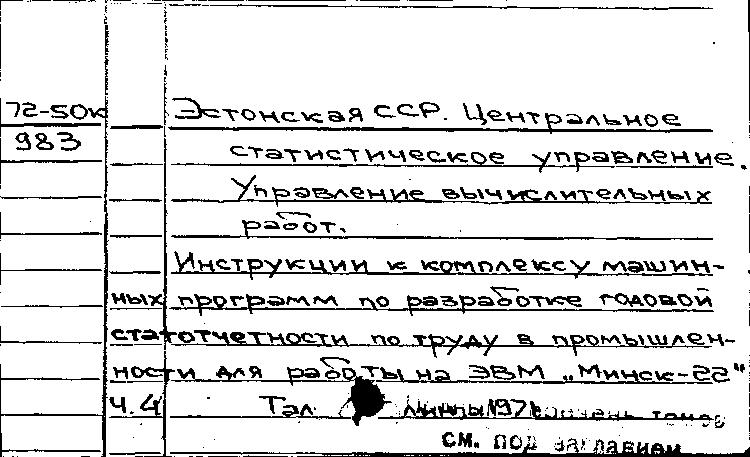 72-50к Эстонская ССР. Центральное
983 статистическое управление.
Управление вычислительных
работ.
Инструкции к комплексу машин-
ных программ по разработке годовой
статотчетности по труду в промышлен-
ности для работы на ЭВМ „Минск-22"
Ч.4 Тал 1971
см. под заглавием